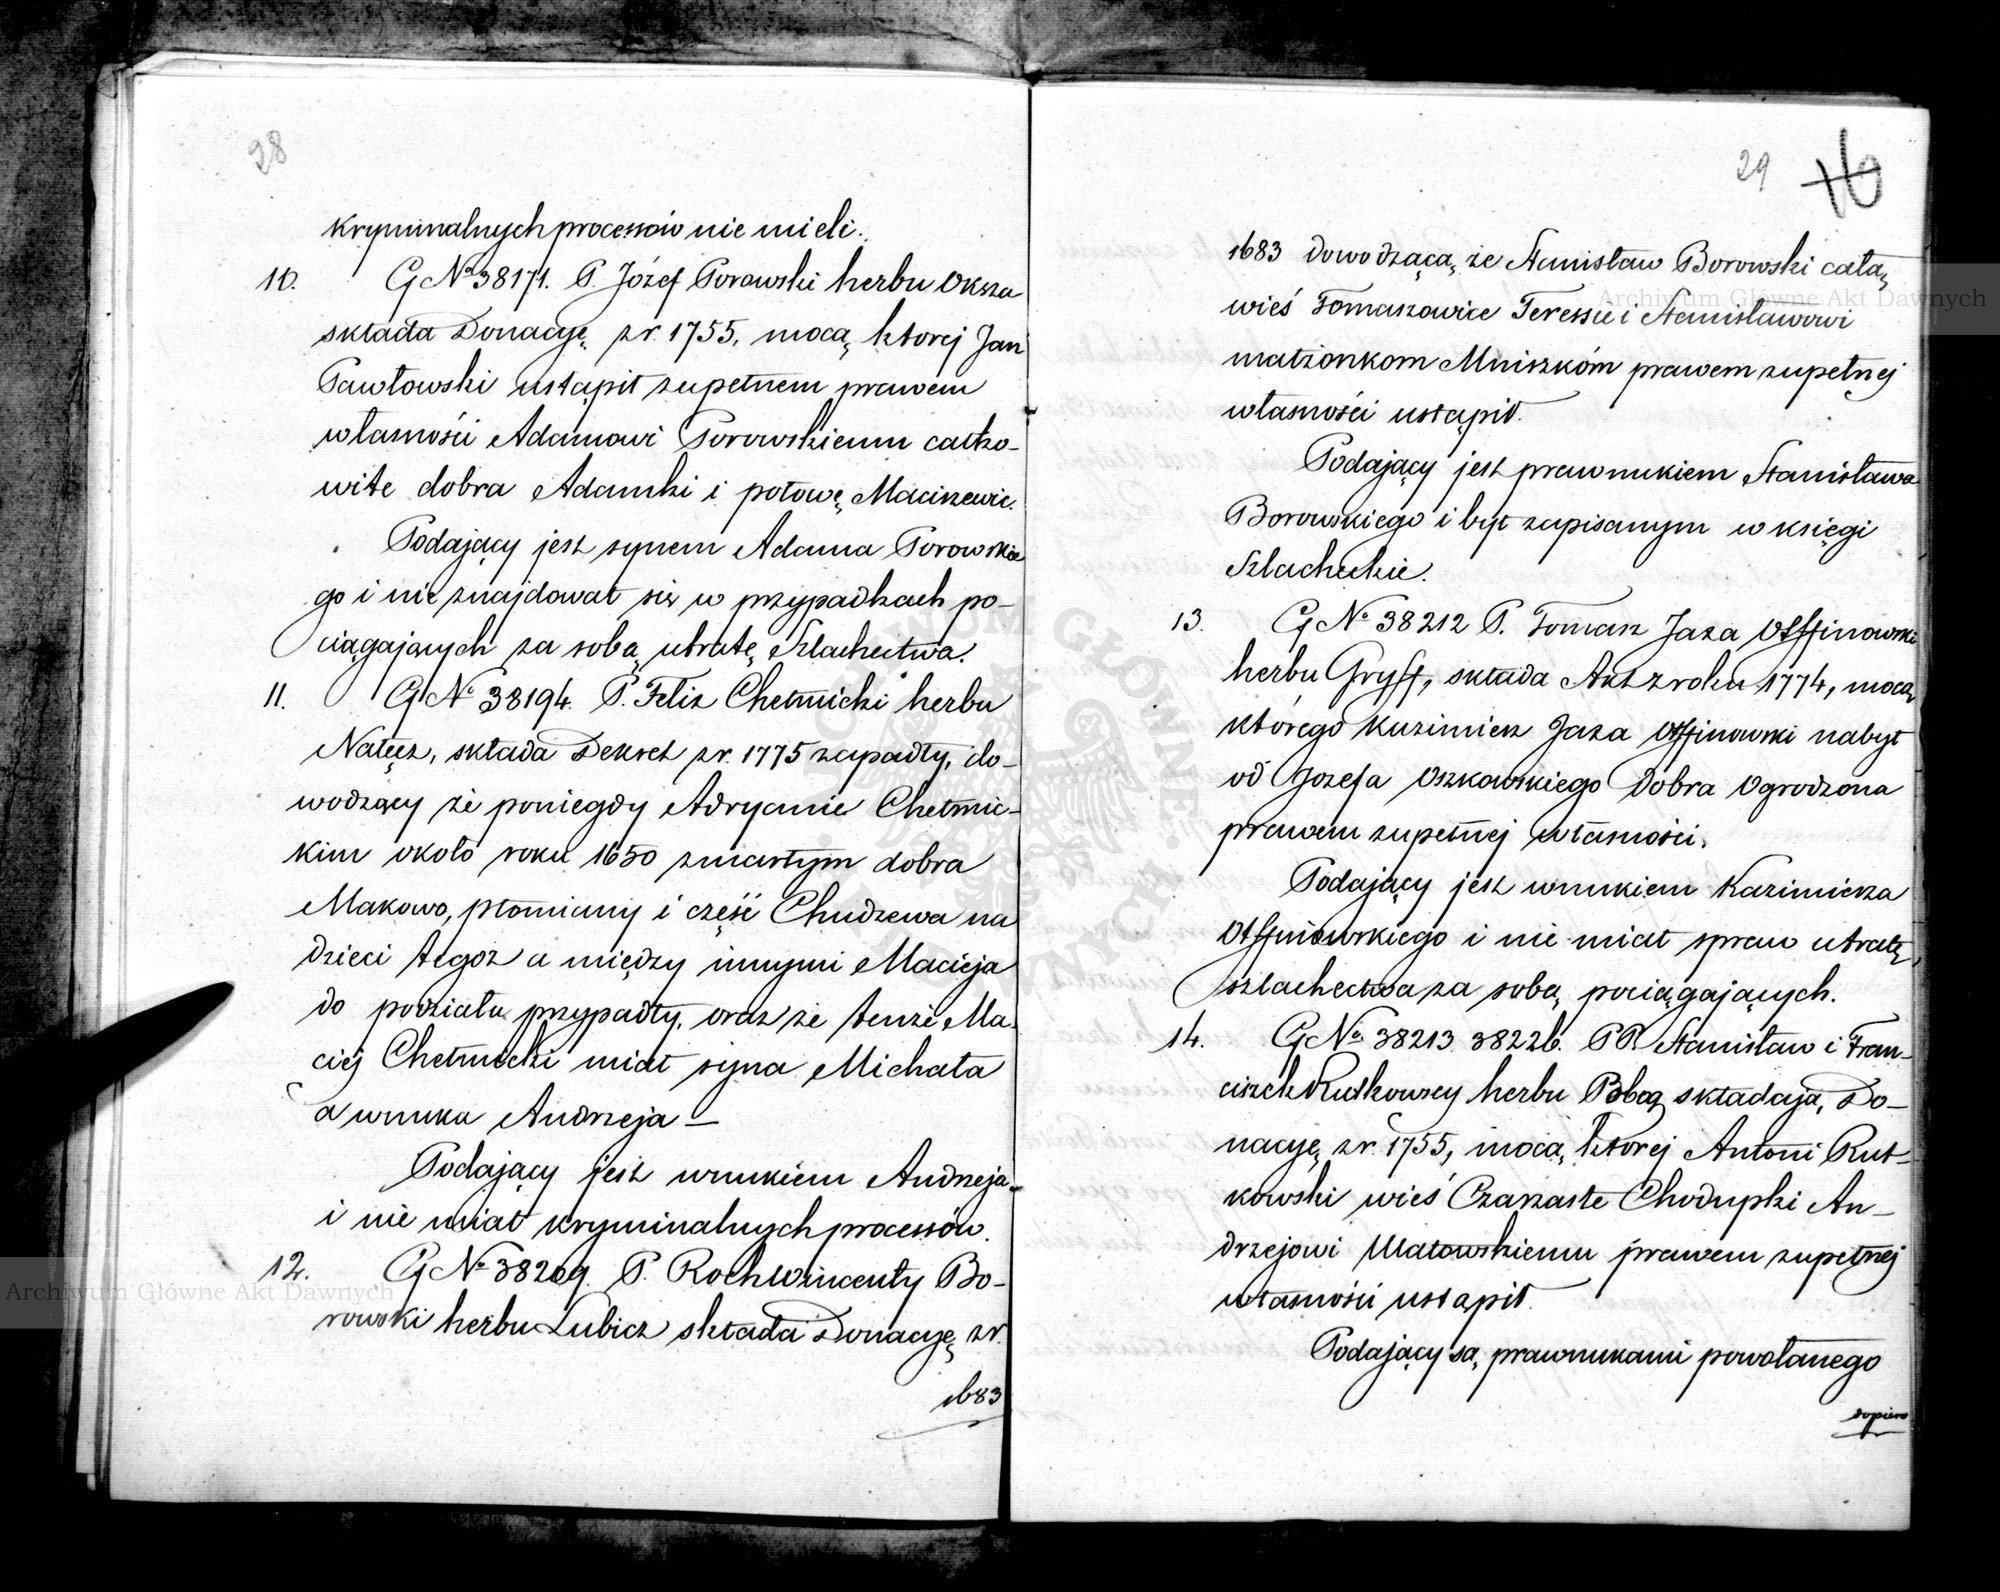 28
kryminalnych processów nie mieli.
10. G N° 38171. P. Józef Porowski herbu Oksza
składa Donacyę z r. 1755, mocą ktorej Jan
Pawłowski ustąpił zupełnem prawem
własności Adamowi Porowskiemu całko-
wite dobra Adamki i połowę Maciszewic.
Podający jest synem Adama Porowskie
go i nie znajdował się w przypadkach po-
ciągających za sobą utratę Szlachectwa.
11. G N° 38194. P. Felix Chełmicki herbu
Nałęcz, składa Dekret z r. 1775 zapadły, do-
wodzący że poniegdy Adryanie Chełmic-
kim około roku 1650 zmarłym dobra
Makowo, płomiany i część Chudzewa na
dzieci tegoż a między innymi Macieja
do podziału przypadły, oraz że tenże Ma-
ciej Chełmicki miał syna Michała
a wnuka Andrzeja —
Podający jest wnukiem Andrzeja
i nie miał kryminalnych processów.
12. G N° 38209. P. Roch Wincenty Bo-
rowski herbu Lubicz składa Donacyę z r.
1683
29 16
1683 dowodzącą, że Stanisław Borowski całą
wieś Tomaszowice Teressie i Stanisławowi
małżonkom Mniszkóm prawem zupełnej
własności ustąpił.
Podający jest prawnukiem Stanisława
Borowskiego i był zapisanym w księgi
Szlacheckie.
13. G N° 38212 P. Tomasz Jaxa Otffinowski
herbu Gryff, składa Akt z roku 1774, mocą
którego Kazimierz Jaxa Otffinowski nabył
od Jozefa Oszkowskiego Dobra Ogrodzona
prawem zupełnej własności.
Podający jest wnukiem Kazimierza
Otffinowskiego i nie miał spraw utratę
szlachectwa za sobą pociągających.
14. G N° 38213 38226. PP. Stanisław i Fran-
ciszek Rutkowscy herbu Pobog składają Do-
nacyę z r. 1755, mocą ktorej Antoni Rut-
kowski wieś Czarzaste Chodupki An-
drzejowi Ułatowskiemu prawem zupełnej
własności ustąpił.
Podający są prawnukami powołanego
dopiero
Archiwum Główne Akt Dawnych
Archiwum Główne Akt Dawnych